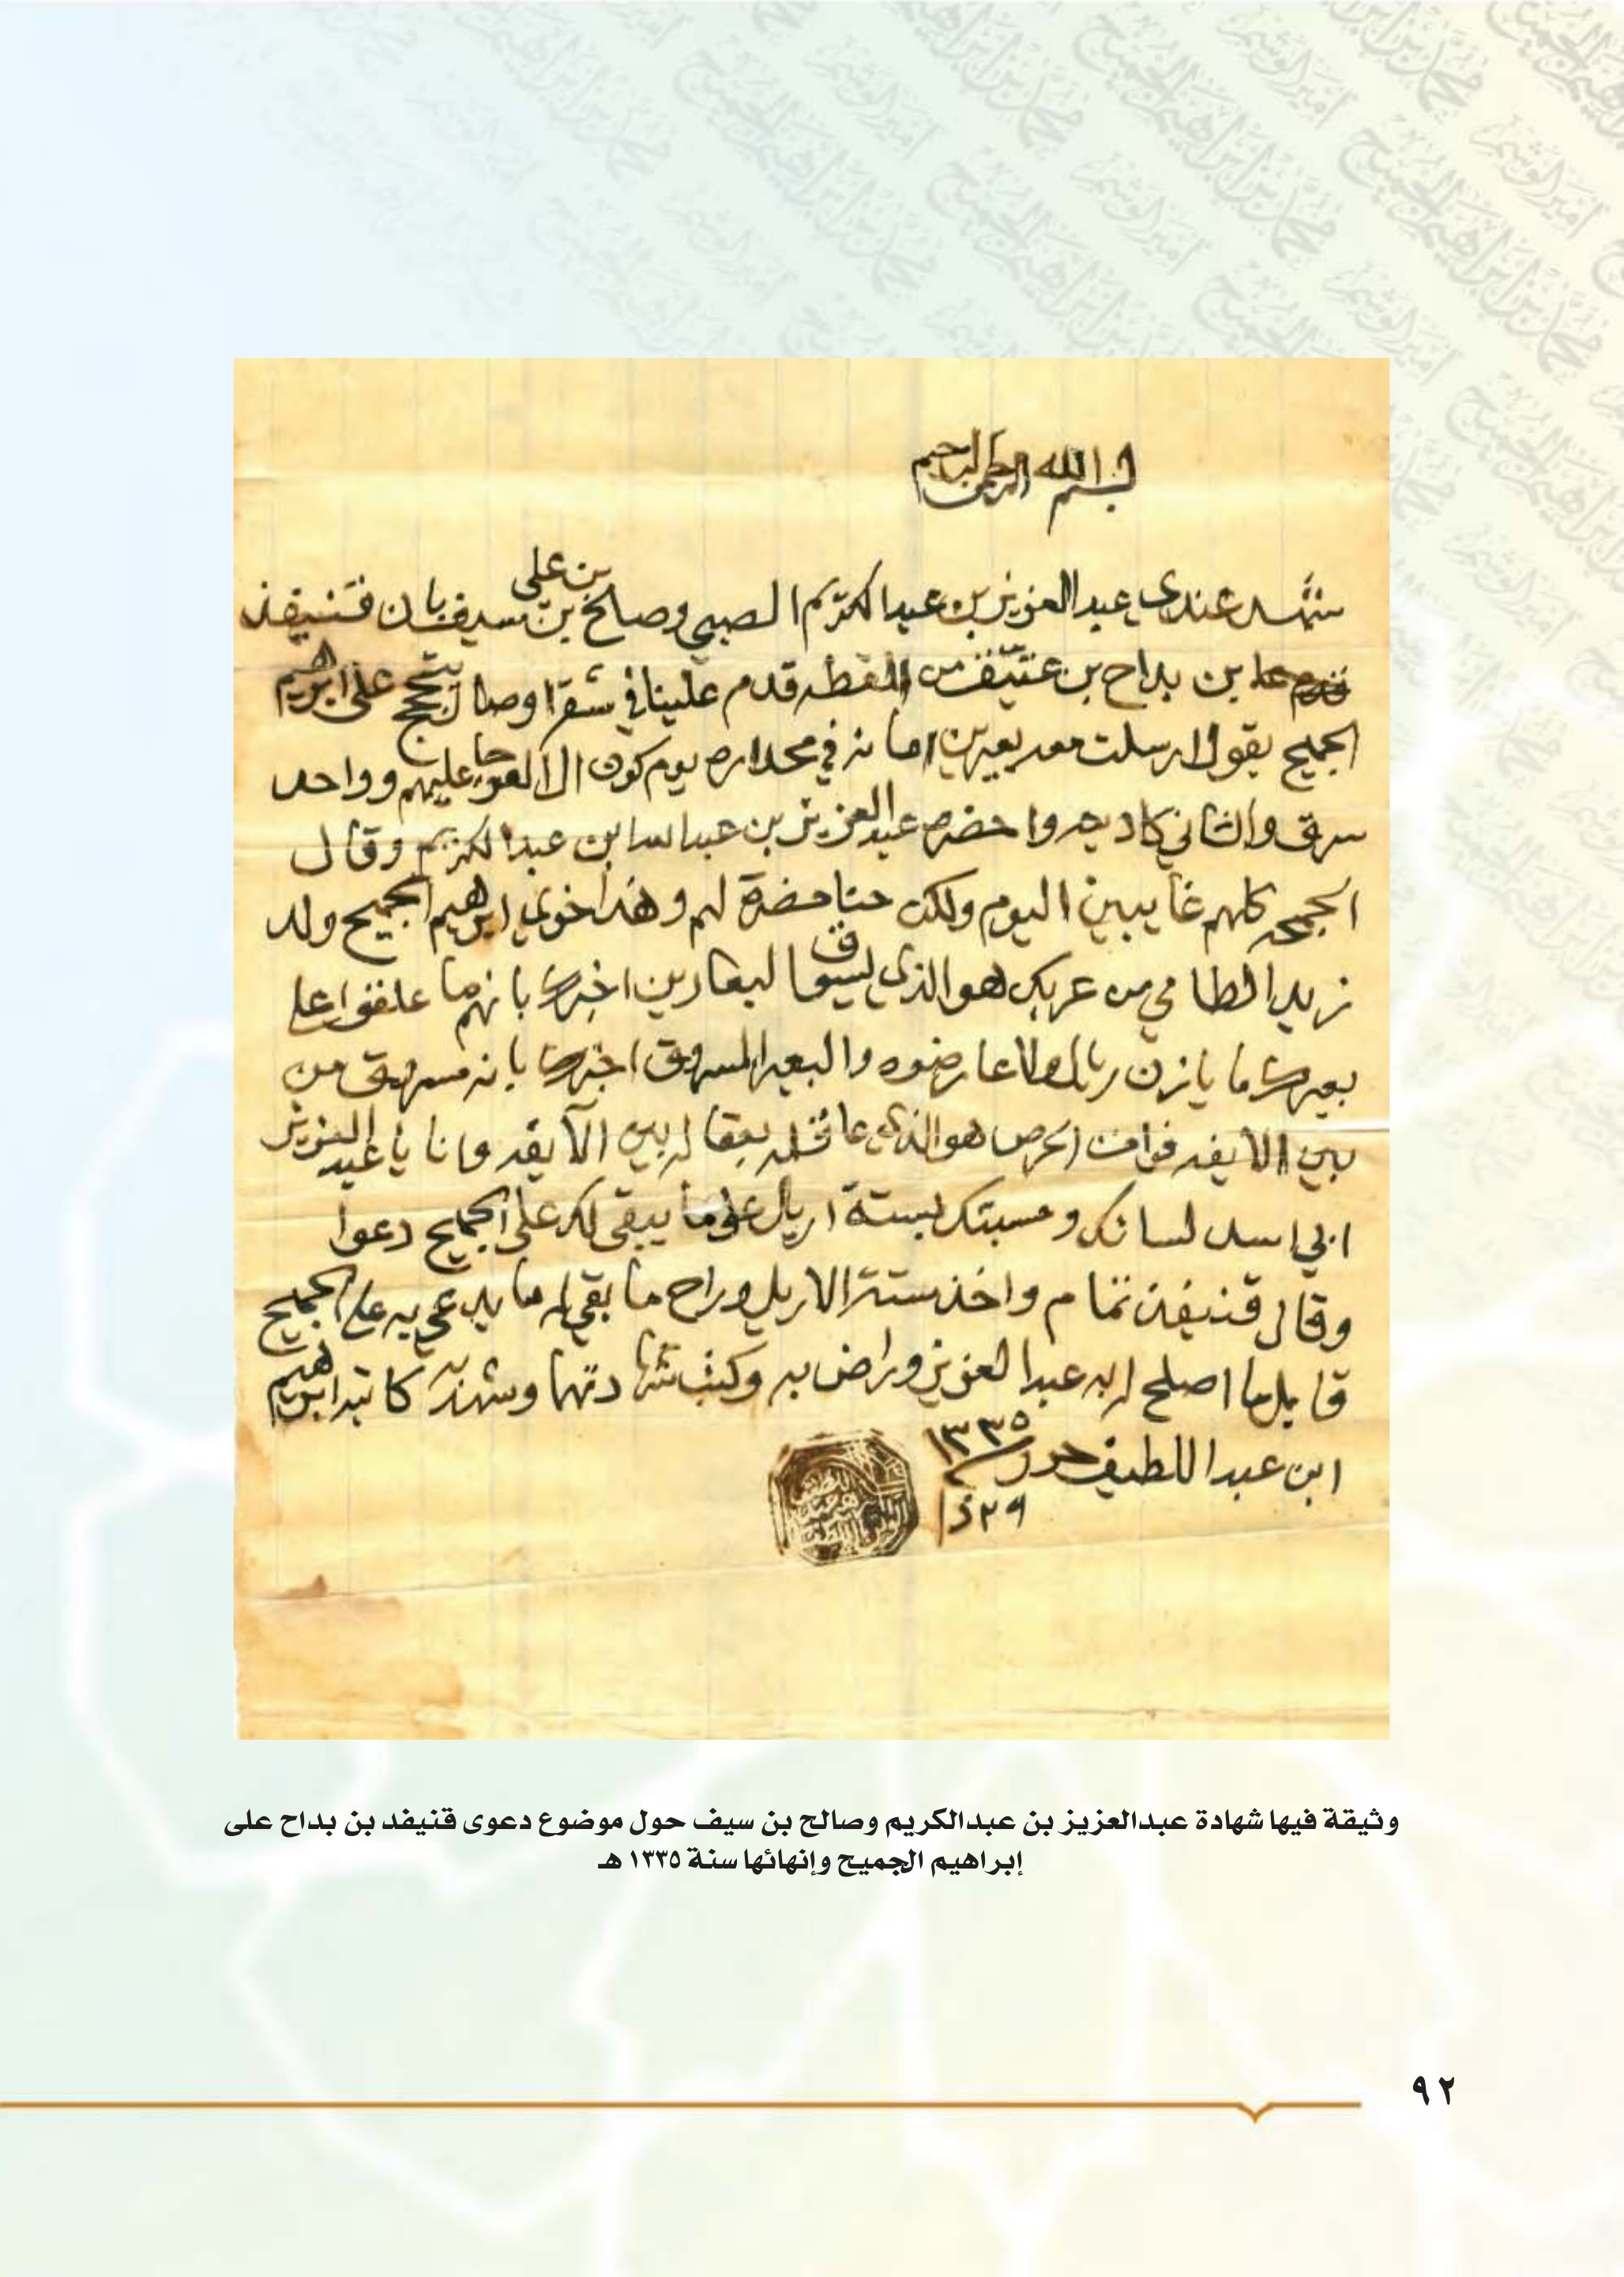 بسم الله الرحمن الرحيم
شهد عندي عبدالعزيز بن عبدالكريم الصبي وصالح بن علي بن سيف بان قنيفذ
بن بداح بن عتيّق من القطه قدم علينا في شقرا وصار يتحجج على ابراهيم
الجميح يقول ارسلت معه بعيرين امانه في محداره يوم كون العوجا عليهم وواحد
سرق والثاني حضره عبدالعزيز بن عبدالله ابن عبدالكريم وقال
الجمحه كلهم غايبين اليوم ولكن حنا حضرة لهم وهذا خوي ابراهيم الجميح ولد
زيد الطامي من عربك هو الذي يسوق البعارين اخبرنا بانهما علقوا على
بعيرك ما يازن ريال ولا عارضوه والبعير المسروق اخبرنا بانه مسروق من
بين الاباعر هو الذي عاقله بعقاله بين وانا يا عبدالعزيز
ابي اسد لسانك وحسبتك بستة اريل على ما يبقى لك على الجميح دعوا
وقال قنيفذ تمام واخذ ستة الاريل وراح ما بقي له ما يدعي به على الجميح
قابل ما اصلح له به عبدالعزيز وراض به وكتب شهادتهما وشهد به كاتبه ابراهيم
ابن عبداللطيف حرر ١٣٣٥
٢٩ ذا
وثيقة فيها شهادة عبدالعزيز بن عبدالكريم وصالح بن سيف حول موضوع دعوى قنيفد بن بداح على
إبراهيم الجميح وإنهائها سنة ١٣٣٥ هـ
٩٢